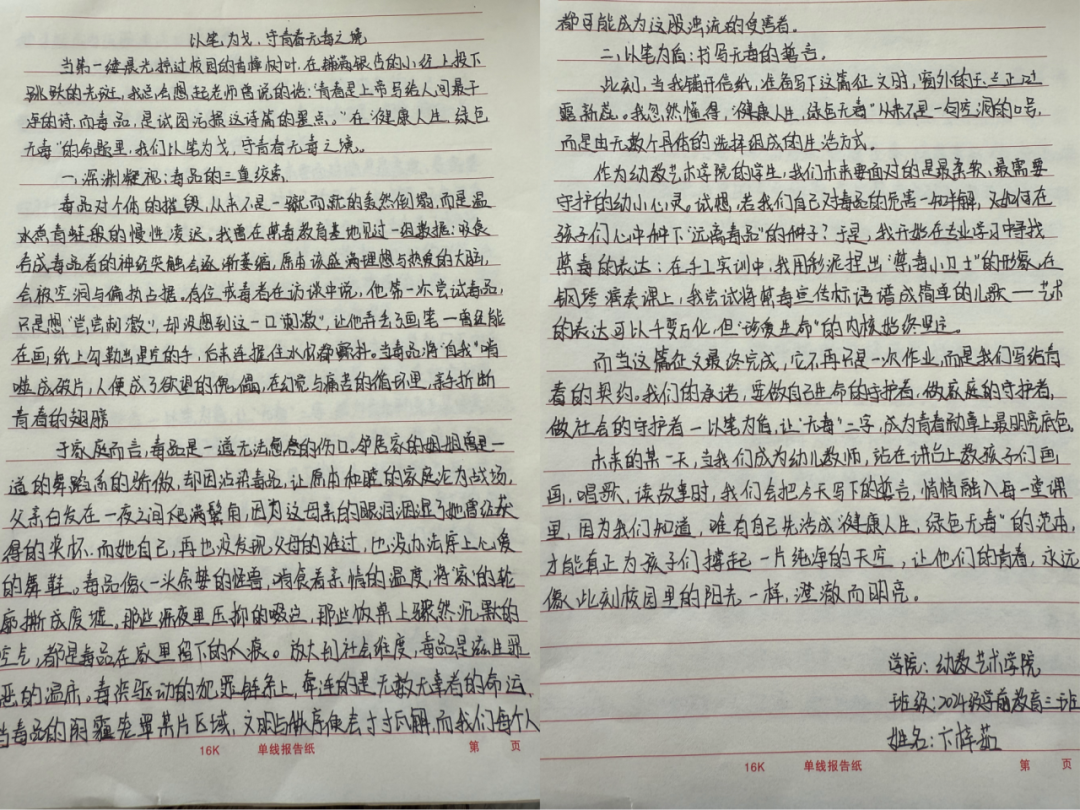 以笔为戈,守青春无毒之境
当第一缕晨光掠过校园的香樟树叶,在铺满银杏的小径上投下
跳跃的光斑,我总会想起老师曾说的话:"青春是上帝写给人间最干
净的诗,而毒品,是试图污损这诗篇的墨点。"在"健康人生,绿色
无毒"的命题里,我们以笔为戈,守青春无毒之境。
一、深渊凝视:毒品的三重绞索
毒品对个体的摧毁,从来不是一蹴而就的轰然倒塌,而是温
水煮青蛙般的慢性凌迟。我曾在禁毒教育基地见过一组数据:吸食
合成毒品者的神经突触会逐渐萎缩,原本该盛满理想与热爱的大脑,
会被空洞与偏执占据。有位戒毒者在访谈中说,他第一次尝试毒品,
只是想"尝尝刺激",却没想到这一口"刺激",让他弄丢了画笔一曾经能
在画纸上勾勒出星空的手,后来连握住水杯都颤抖。当毒品将"自我"啃
噬成碎片,人便成了欲望的傀儡,在幻觉与痛苦的循环里,亲手折断
青春的翅膀
于家庭而言,毒品是一道无法愈合的伤口。邻居家的姐姐曾是一
道的舞蹈系的骄傲,却因沾染毒品,让原本和睦的家庭沦为战场,
父亲白发在一夜之间爬满鬓角,因为这母亲的眼泪洇湿了她曾经获
得的奖杯.而她自己,再也没发现父母的难过,也没办法穿上心爱
的舞鞋。毒品像一头贪婪的怪兽,啃食着亲情的温度,将"家"的轮
廓撕成废墟。那些深夜里压抑的啜泣,那些饭桌上骤然沉默的
空气,都是毒品在家里留下的伤痕。放大到社会维度,毒品是滋生罪
恶的温床。毒资驱动的犯罪链条上,牵连的是无数无辜者的命运。
当毒品的阴霾笼罩某片区域,文明与秩序便会寸寸瓦解,而我们每个人
16K 单线报告纸 第 页
都可能成为这股浊流的受害者。
二、以笔为盾:书写无毒的誓言。
此刻,当我铺开信纸,准备写下这篇征文时,窗外的玉兰正过
露新蕊。我忽然懂得,"健康人生,绿色无毒"从来不是一句空洞的口号,
而是由无数个具体的选择组成的生活方式。
作为幼教艺术学院的学生,我们未来要面对的是最柔软、最需要
守护的幼小心灵。试想,若我们自己对毒品的危害一知半解,又如何在
孩子们心中种下"远离毒品"的种子?于是,我开始在专业学习中寻找
禁毒的表达:在手工实训中,我用彩泥捏出"禁毒小卫士"的形象,在
钢琴演奏课上,我尝试将禁毒宣传标语谱成简单的儿歌一艺术
的表达可以千变万化,但"珍爱生命"的内核始终坚定。
而当这篇征文最终完成,它不再只是一次作业,而是我们写给青
春的契约。我们的承诺,要做自己生命的守护者,做家庭的守护者,
做社会的守护者一以笔为盾,让"无毒"二字,成为青春勋章上最明亮底色。
未来的某一天,当我们成为幼儿教师,站在讲台上教孩子们画
画,唱歌、读故事时,我们会把今天写下的誓言,悄悄融入每一堂课
里,因为我们知道,唯有自己先活成"健康人生,绿色无毒"的范本,
才能真正为孩子们撑起一片纯净的天空,让他们的青春,永远
像此刻校园里的阳光一样,澄澈而明亮。
学院:幼教艺术学院
班级:2024级学前教育三班
姓名:卞梓茹
16K 单线报告纸 第 页